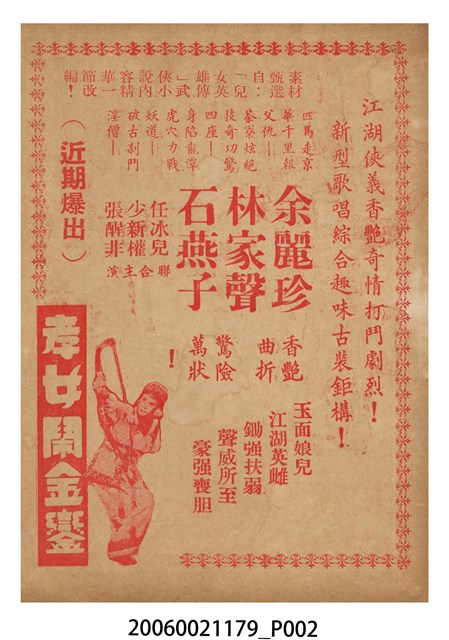 江湖俠義香艷奇情打鬥劇烈！
新型歌唱綜合趣味古裝鉅構！
素材
甄選
自：
「兒
女英
雄傳
」武
俠小
說內
容精
華一
節改
編！
匹馬走京
華千里報
父仇—
茶寮炫絕
技奇功驚
四座—
身陷龍潭
虎穴力戰
妖道—
破古刹鬥
淫僧—
余麗珍
林家聲
石燕子
任冰兒
少新權
張醒非
聯合主演
（近期爆出）
香艷
曲折
驚險
萬狀
！
玉面娘兒
江湖英雌
鋤強扶弱
聲威所至
豪强喪胆
孝女鬧金鑾
20060021179_P002